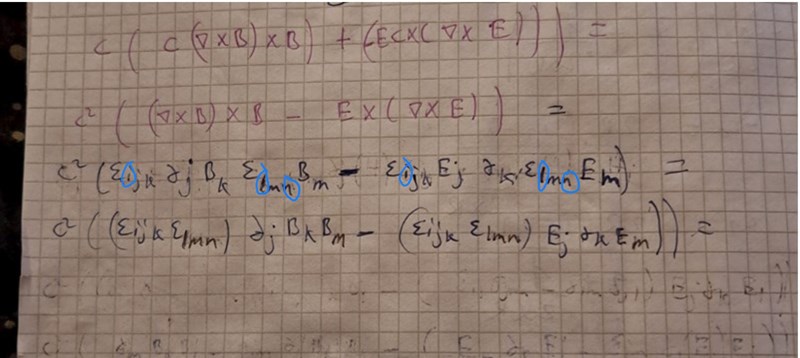 c ( c (∇×B)×B) + (E c×(∇× E)) ) =
c² ( (∇×B)×B - E×(∇×E) ) =
c² (εijk ∂j Bk εlmn Bm - εijk Ej ∂k εlmn Em) =
c² ((εijk εlmn) ∂j Bk Bm - (εijk εlmn) Ej ∂k Em)) =